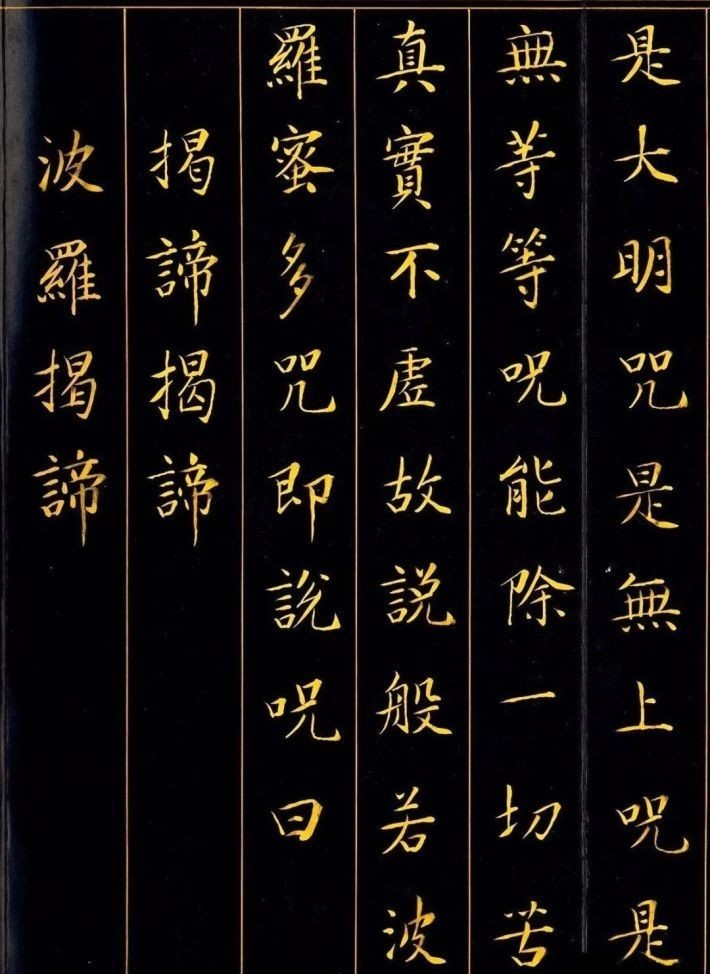 是大明咒是無上呪是
無等等呪能除一切苦
真實不虛故說般若波
羅蜜多咒即說呪曰
揭諦揭諦
波羅揭諦